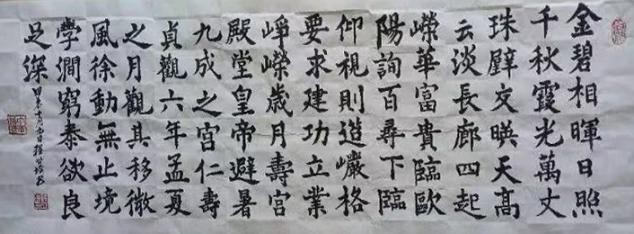 金碧相暉日照
千秋霞光萬丈
珠璧交暎天高
云淡長廊四起
嶸華富貴臨歐
陽詢百尋下臨
仰視則造巘格
要求建功立業
崢嶸歲月壽宮
殿堂皇帝避暑
九成之宮仁壽
貞觀六年孟夏
之月觀其移微
風徐動無止境
學澗窮泰欲良
足深